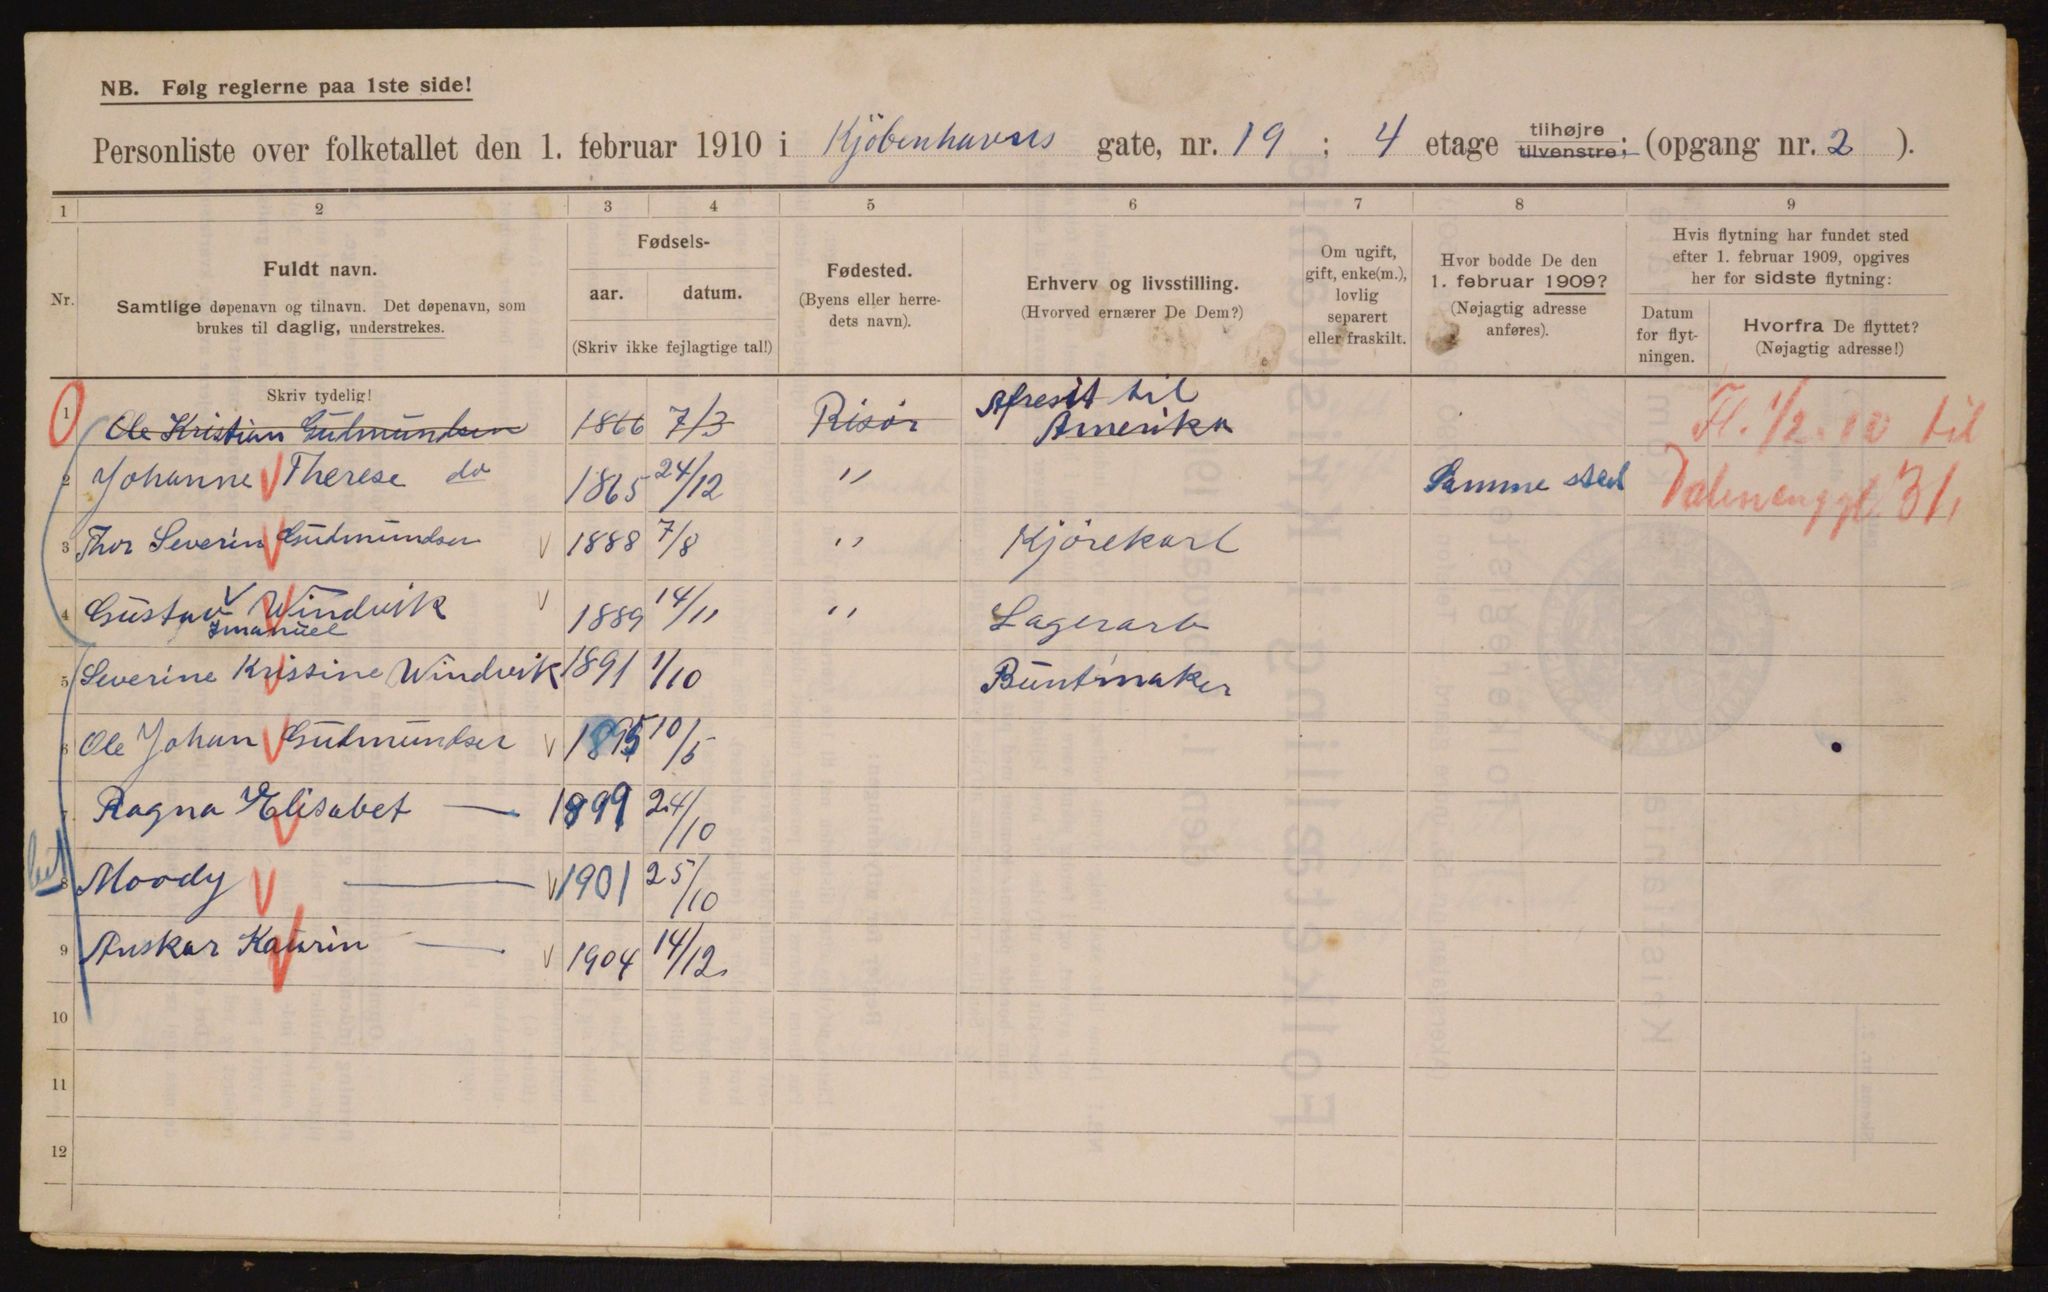 NB. Følg reglerne paa 1ste side!
Personliste over folketallet den 1. februar 1910 i Kjöbenhavns gate, nr. 19 ; 4 etage tilhøjre tilvenstre; (opgang nr. 2 ).
1 2 3 4 5 6 7 8 9
Nr.
Fuldt navn.
Samtlige døpenavn og tilnavn. Det døpenavn, som
brukes til daglig, understrekes.
Fødsels-
aar. datum.
(Skriv ikke fejlagtige tal!)
Fødested.
(Byens eller herre-
dets navn).
Erhverv og livsstilling.
(Hvorved ernærer De Dem?)
Om ugift,
gift, enke(m.),
lovlig
separert
eller fraskilt.
Hvor bodde De den
1. februar 1909?
(Nøjagtig adresse
anføres).
Hvis flytning har fundet sted
efter 1. februar 1909, opgives
her for sidste flytning:
Datum
for flyt-
ningen.
Hvorfra De flyttet?
(Nøjagtig adresse!)
Skriv tydelig!
1 Ole Kristian Gudmundsen 1866 7/3 Risör Afreist til Amerika Fl. 1/2 10 til
2 Johanne Therese do 1865 24/12 " Samme sted 31
3 Thor Severin Gudmundsen 1888 7/8 " Kjörekarl
4 Gustav Windvik 1889 14/11 " Lagerarb
Imanuel
5 Severine Kristine Windvik 1891 1/10 Buntmaker
6 Ole Johan Gudmundsen 1895 10/5
7 Ragna Elisabet — 1899 24/10
8 Moody — 1901 25/10
9 Anskar Kaurin — 1904 14/12
10
11
12